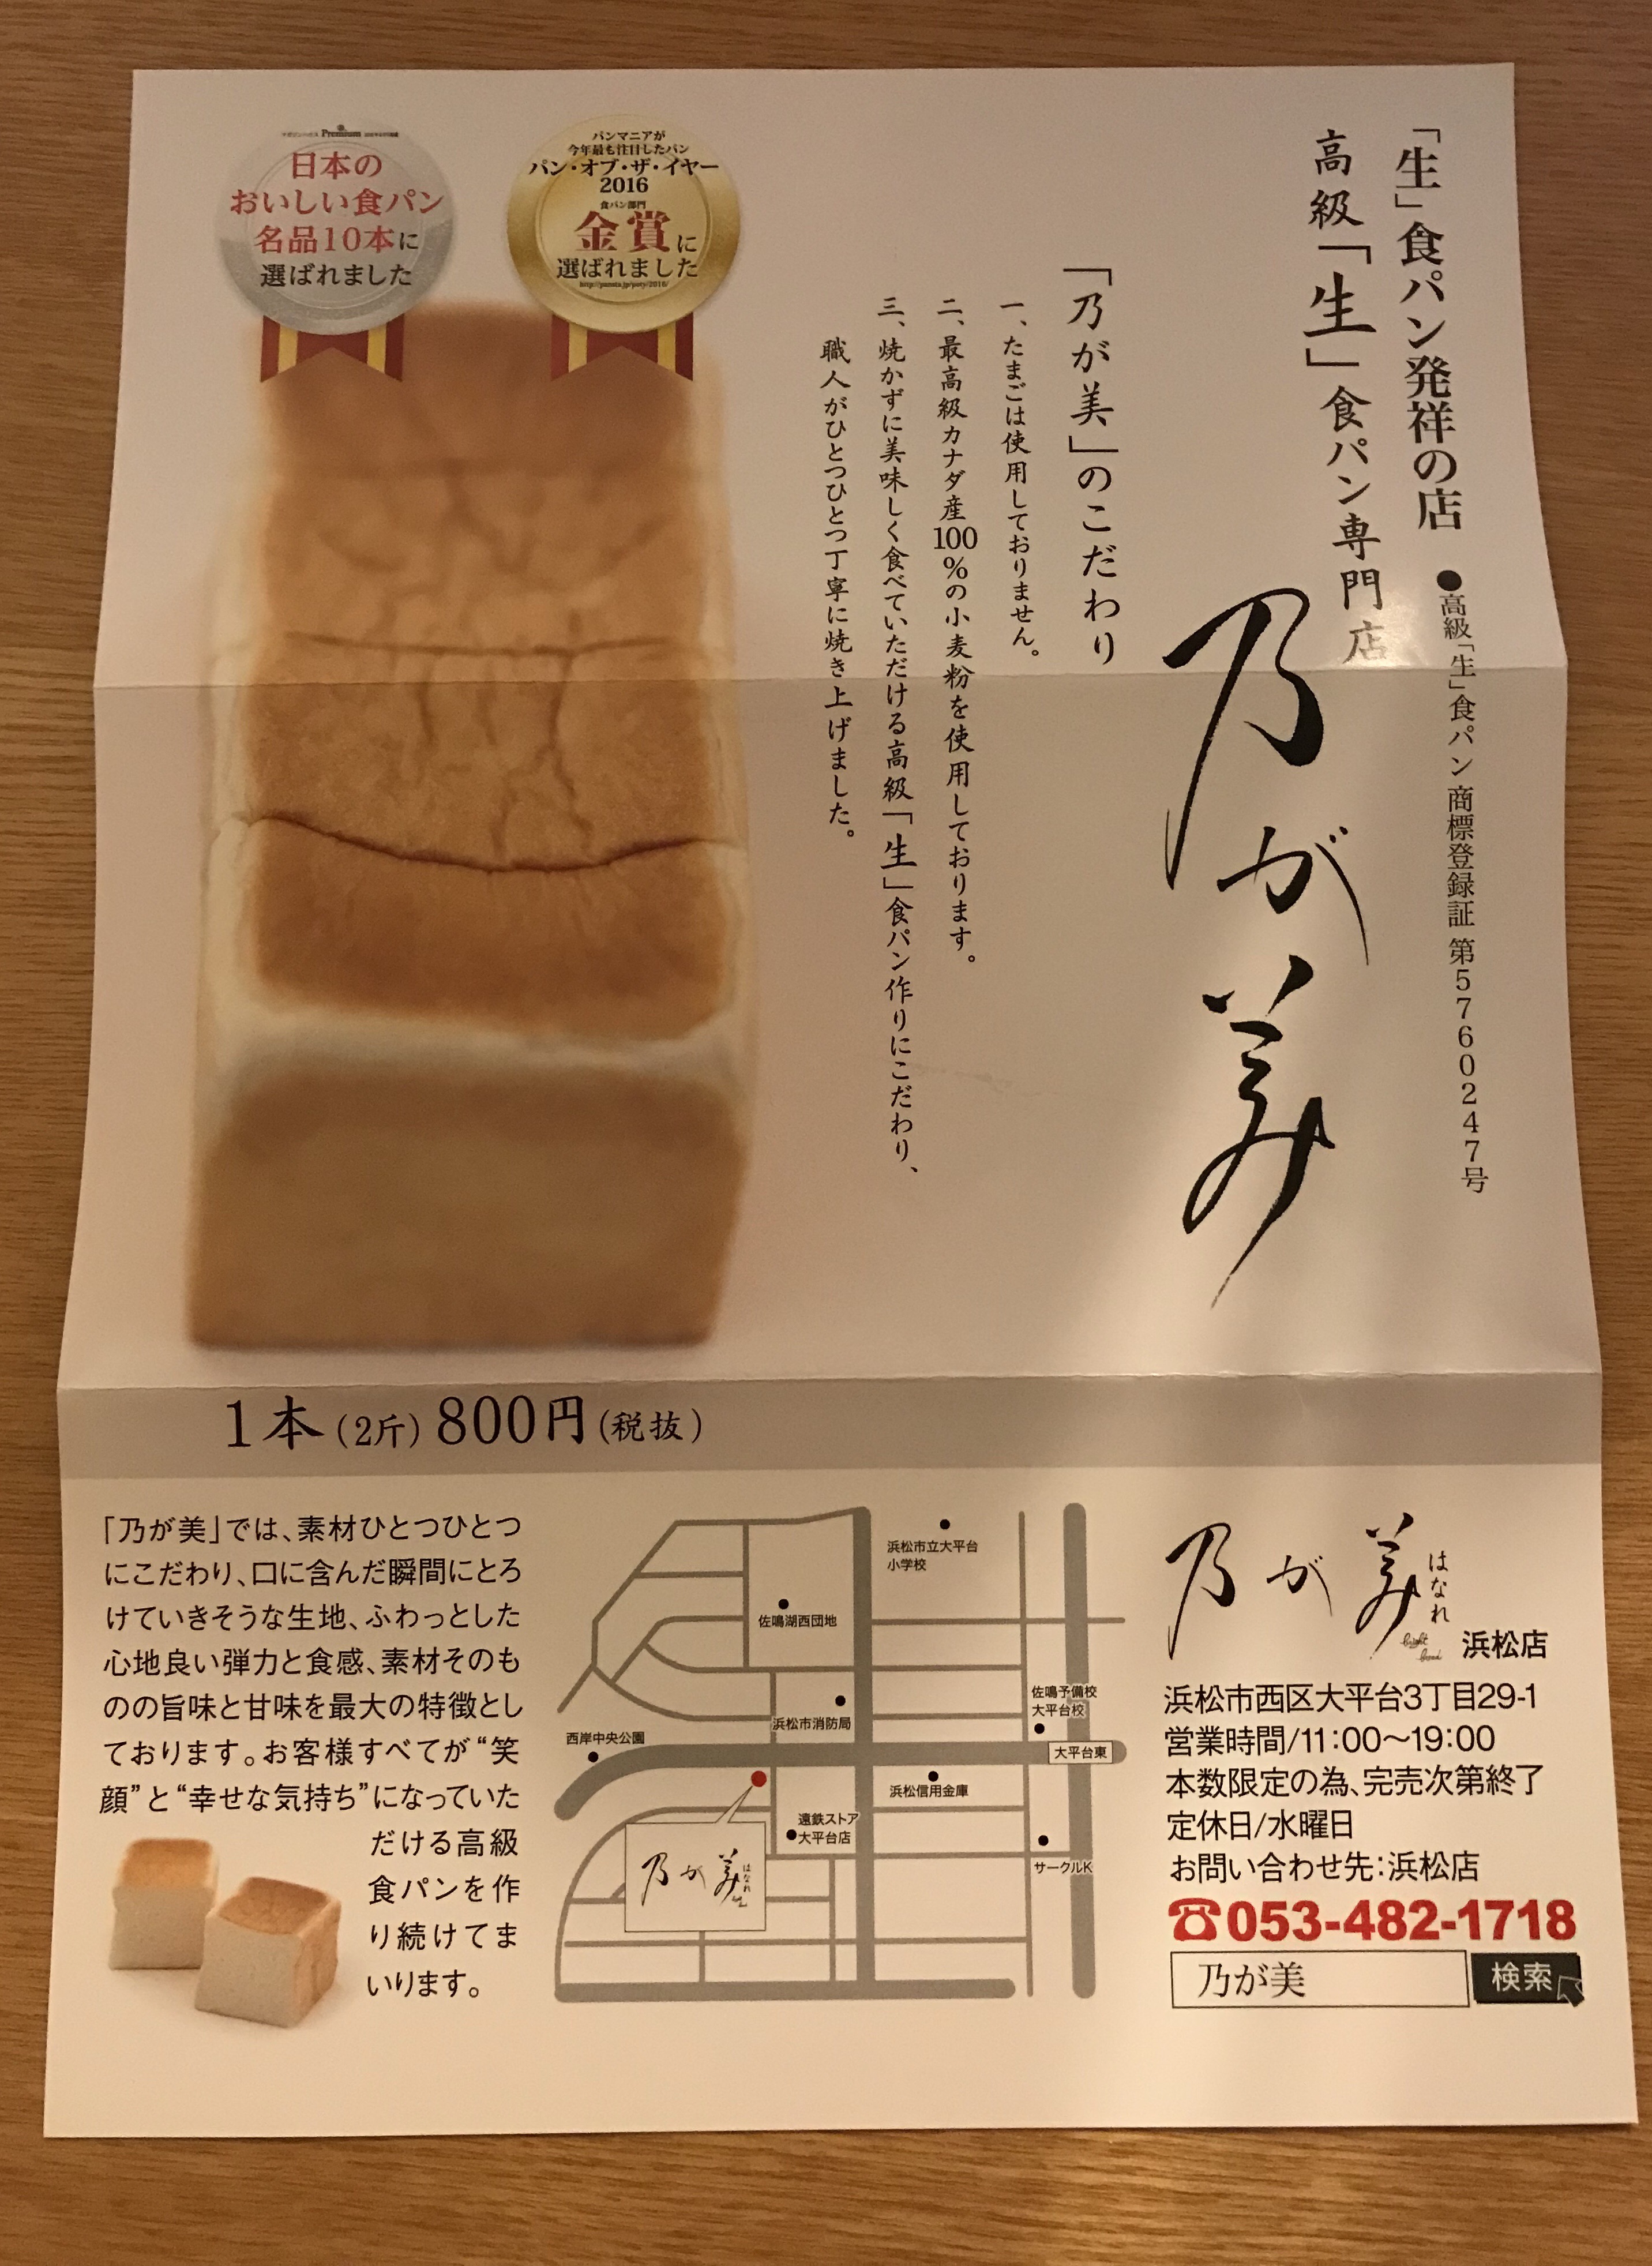 「生」食パン発祥の店
●高級「生」食パン 商標登録証 第5760247号
高級「生」食パン専門店
乃が美
「乃が美」のこだわり
一、たまごは使用しておりません。
二、最高級カナダ産100%の小麦粉を使用しております。
三、焼かずに美味しく食べていただける高級「生」食パン作りにこだわり、
職人がひとつひとつ丁寧に焼き上げました。
パンマニアが
今年最も注目したパン
パン・オブ・ザ・イヤー
2016
食パン部門
金賞に
選ばれました
http://pansta.jp/poty/2016/
Premium
日本の
おいしい食パン
名品10本に
選ばれました
1本(2斤)800円(税抜)
「乃が美」では、素材ひとつひとつ
にこだわり、口に含んだ瞬間にとろ
けていきそうな生地、ふわっとした
心地良い弾力と食感、素材そのも
のの旨味と甘味を最大の特徴とし
ております。お客様すべてが“笑
顔”と“幸せな気持ち”になっていた
だける高級
食パンを作
り続けてま
いります。
浜松市立大平台
小学校
佐鳴湖西団地
佐鳴予備校
大平台校
浜松市消防局
西岸中央公園
大平台東
浜松信用金庫
遠鉄ストア
大平台店
サークルK
乃が美
はなれ
乃が美
はなれ
bright
bread
浜松店
浜松市西区大平台3丁目29-1
営業時間/11:00〜19:00
本数限定の為、完売次第終了
定休日/水曜日
お問い合わせ先:浜松店
☎053-482-1718
乃が美 検索